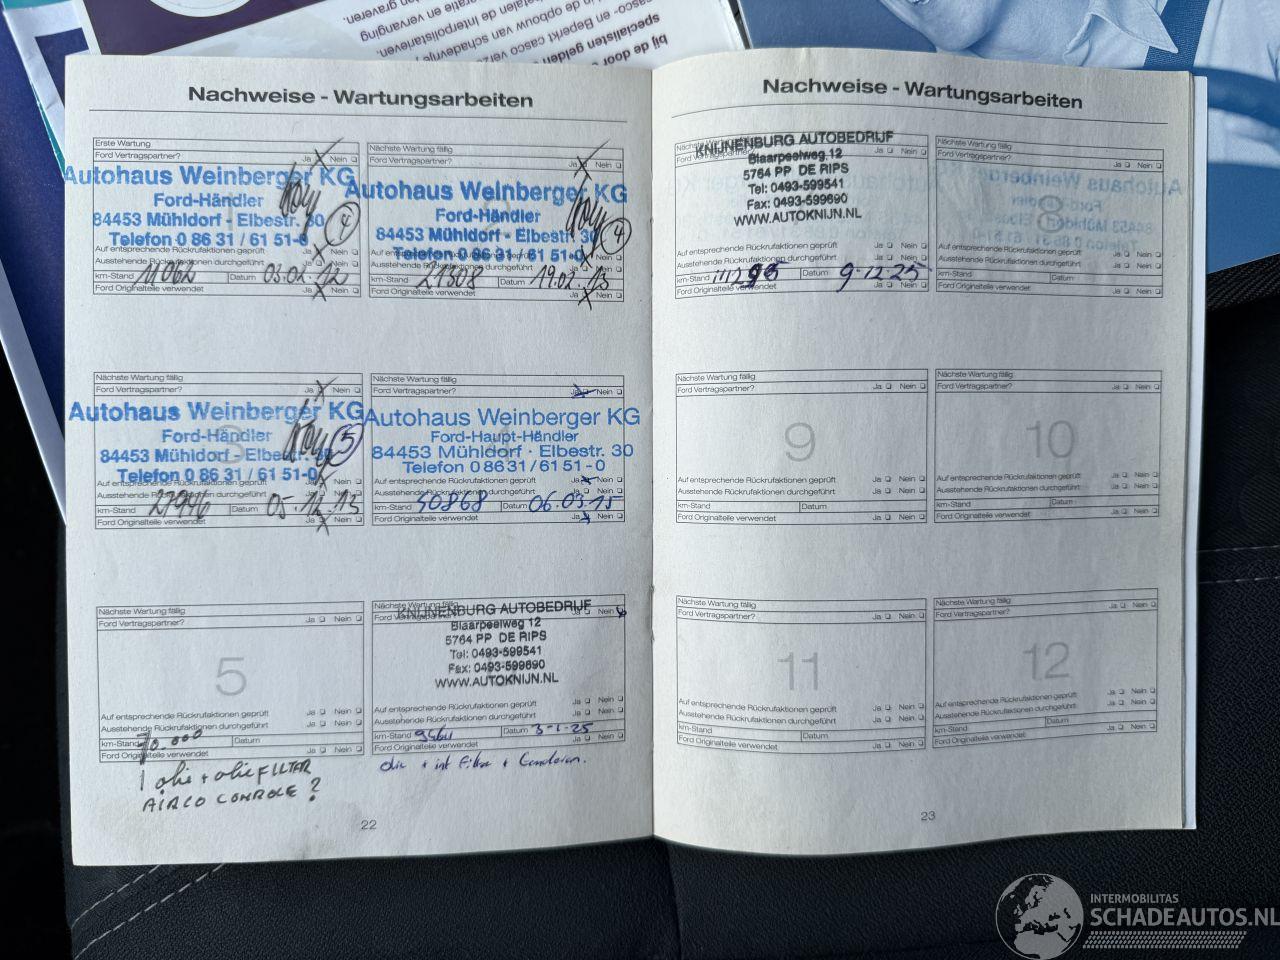 Nachweise - Wartungsarbeiten
Erste Wartung
Ford Vertragspartner? Ja Nein
Autohaus Weinberger KG
Ford-Händler
84453 Mühldorf - Elbestr. 30
Telefon 0 86 31 / 61 51-0
4
Auf entsprechende Rückrufaktionen geprüft Ja Nein
Ausstehende Rückrufaktionen durchgeführt Ja Nein
km-Stand 11062 Datum 03.02.12
Ford Originalteile verwendet Ja Nein
Nächste Wartung fällig
Ford Vertragspartner? Ja Nein
Autohaus Weinberger KG
Ford-Händler
84453 Mühldorf - Elbestr. 30
Telefon 0 86 31 / 61 51-0
4
Auf entsprechende Rückrufaktionen geprüft Ja Nein
Ausstehende Rückrufaktionen durchgeführt Ja Nein
km-Stand 21808 Datum 19.02.13
Ford Originalteile verwendet Ja Nein
Nächste Wartung fällig
Ford Vertragspartner? Ja Nein
3
Autohaus Weinberger KG
Ford-Händler
84453 Mühldorf - Elbestr. 30
Telefon 0 86 31 / 61 51-0
5
Auf entsprechende Rückrufaktionen geprüft Ja Nein
Ausstehende Rückrufaktionen durchgeführt Ja Nein
km-Stand 27946 Datum 05.12.13
Ford Originalteile verwendet Ja Nein
Nächste Wartung fällig
Ford Vertragspartner? Ja Nein
4
Autohaus Weinberger KG
Ford-Haupt-Händler
84453 Mühldorf · Elbestr. 30
Telefon 0 86 31 / 61 51-0
Auf entsprechende Rückrufaktionen geprüft Ja Nein
Ausstehende Rückrufaktionen durchgeführt Ja Nein
km-Stand 40868 Datum 06.03.15
Ford Originalteile verwendet Ja Nein
Nächste Wartung fällig
Ford Vertragspartner? Ja Nein
5
Auf entsprechende Rückrufaktionen geprüft Ja Nein
Ausstehende Rückrufaktionen durchgeführt Ja Nein
km-Stand 70.000 Datum
Ford Originalteile verwendet Ja Nein
1 olie + olie FILTER
AIRCO CONROLE?
Nächste Wartung fällig
Ford Vertragspartner? Ja Nein
KNIJNENBURG AUTOBEDRIJF
Blaarpeelweg 12
5764 PP DE RIPS
Tel: 0493-599541
Fax: 0493-599690
WWW.AUTOKNIJN.NL
Auf entsprechende Rückrufaktionen geprüft Ja Nein
Ausstehende Rückrufaktionen durchgeführt Ja Nein
km-Stand Datum 3-1-25
Ford Originalteile verwendet Ja Nein
olie + int Filter +
22
Nachweise - Wartungsarbeiten
KNIJNENBURG AUTOBEDRIJF
Ford Ja Nein
Blaarpeelweg 12
5764 PP DE RIPS
Tel: 0493-599541
Fax: 0493-599690
WWW.AUTOKNIJN.NL
Auf entsprechende Rückrufaktionen geprüft Ja Nein
Ausstehende Rückrufaktionen durchgeführt Ja Nein
km-Stand Datum 9-12-25
Ford Originalteile verwendet Ja Nein
Nächste Wartung fällig
Ford Vertragspartner? Ja Nein
8
Auf entsprechende Rückrufaktionen geprüft Ja Nein
Ausstehende Rückrufaktionen durchgeführt Ja Nein
km-Stand Datum
Ford Originalteile verwendet Ja Nein
Nächste Wartung fällig
Ford Vertragspartner? Ja Nein
9
Auf entsprechende Rückrufaktionen geprüft Ja Nein
Ausstehende Rückrufaktionen durchgeführt Ja Nein
km-Stand Datum
Ford Originalteile verwendet Ja Nein
Nächste Wartung fällig
Ford Vertragspartner? Ja Nein
10
Auf entsprechende Rückrufaktionen geprüft Ja Nein
Ausstehende Rückrufaktionen durchgeführt Ja Nein
km-Stand Datum
Ford Originalteile verwendet Ja Nein
Nächste Wartung fällig
Ford Vertragspartner? Ja Nein
11
Auf entsprechende Rückrufaktionen geprüft Ja Nein
Ausstehende Rückrufaktionen durchgeführt Ja Nein
km-Stand Datum
Ford Originalteile verwendet Ja Nein
Nächste Wartung fällig
Ford Vertragspartner? Ja Nein
12
Auf entsprechende Rückrufaktionen geprüft Ja Nein
Ausstehende Rückrufaktionen durchgeführt Ja Nein
km-Stand Datum
Ford Originalteile verwendet Ja Nein
23
INTERMOBILITAS
SCHADEAUTOS.NL